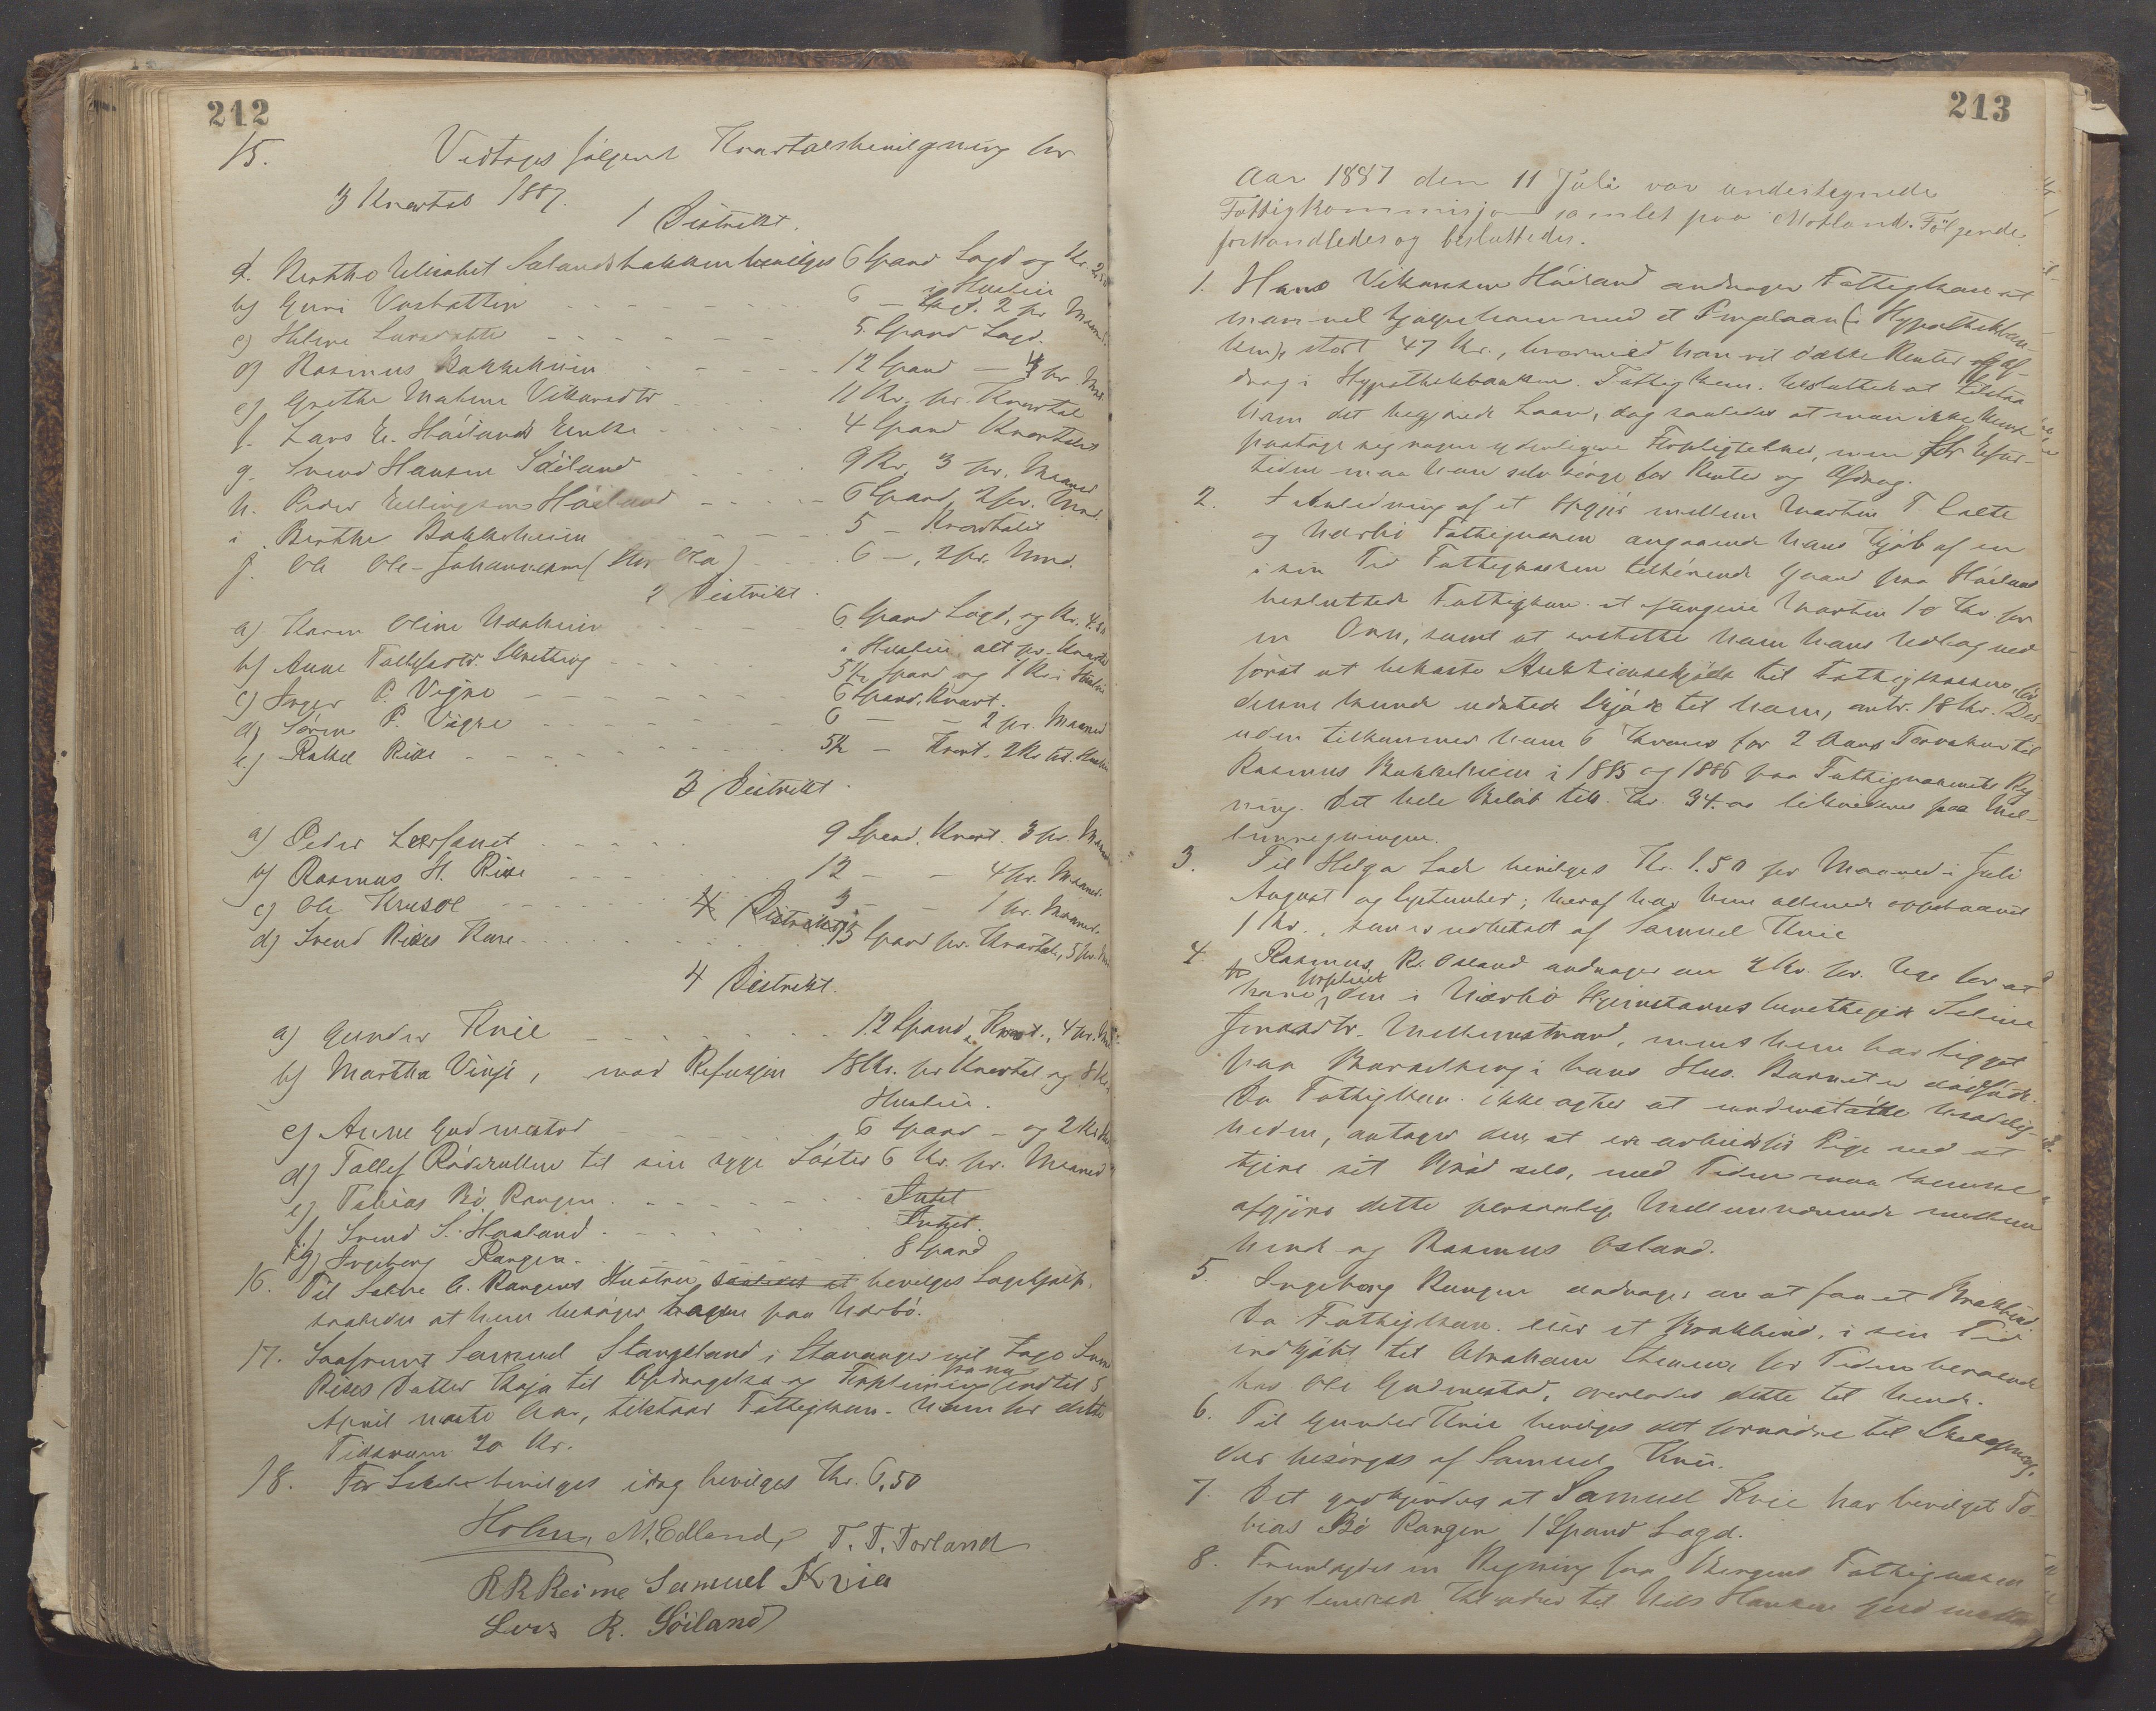 212
15. Vedtoges følgende Kvartalsbevilgning for
3 Kvartal 1887.
1 Distrikt.
Berthe Elisabet Sælandsbakken bevilges 6 Spand Lagd og Kr. 2,50
i Husleie
b) Guri Varhattin 6 — 2 pr Maaned
c) Helene Larsdatter 5 Spand Lagd.
d) Rasmus Bakkeheien 12 Spand — 4 pr. Mnd.
e) Grethe Malene Vikarsdtr 11 Kr. pr. Kvartal
f. Lars E. Høilands Enke 4 Spand Kvartalet
g. Svend Hansen Søiland 9 Kr, 3 pr. Maaned
h. Peder Ellingsens Høiland 6 Spand, 2 pr. Mnd.
i Berthe Bakkeheien 5 — Kvartalet
j. Ole Ole-Johannesen ( ) 6 —, 2 pr. Mnd.
2 Distrikt.
a) Karen Oline Nærheim 6 Spand Lagd, og Kr. 4.50
i Husleie alt pr. Kvartal
b) Anne Tollefsdtr. Skretting 5 1/2 Spand og 8 Kr i Husleie
c) Inger P. Vigre 6 Spand, Kvart.
d) Søren P. Vigre 6 — — 2 pr. Maaned
e.) Rakel Risa 5 1/2 — Kvart. 2 Kr
3 Distrikt.
a) Peder 9 Spand. Kvart. 3 pr. Maaned
b) Rasmus H. Risa 12 — — 4 pr. Maaned.
c) Ole Krusol 3 — — 1 pr. Maaned.
4 Distrikt
d) Svend Rises Kone 15 Spand pr. Kvartal, 5 pr. Mnd
4 Distrikt.
a) Gunder Kvie 12 Spand, Kvart., 4 pr. Mnd.
b) Martha Vinje, mod Refusjon 18 Kr. pr Kvartal og 8 Kr
Husleie.
c) Anne Gudmestad 6 Spand — og 2 Kr
d) Tollef Rødsrullen til sin syge Søster 6 Kr. pr. Maaned
e) Tobias Bø Rangen Intet
f) Svend S. Haaland Intet.
g) Ingeborg Rangen. 8 Spand
16. Til Sakse A. Rangens Hustru, saaledes at bevilges Lægehjælp.
saaledes at hun besøger Lægen paa Nærbø.
17. Saafremt Samuel Stangeland i Stavanger vil tage Svend
Rises Datter Kaja til Opdragelse og Forpleining fra nu indtil
April næste Aar, tilstaar Fattigkom. ham for dette
Tidsrum 20 Kr.
18. For bevilges idag bevilges Kr. 6,50
Holm, M. Edland, T. T. Torland
R R Reime Samuel Kvia
Lars R. Söiland
213
Aar 1887 den 11 Juli var undertegnede
Fattigkommisjon samlet paa Motland. Følgende
forhandledes og besluttedes.
1. Hans Vikansen Høiland andrager Fattigkom at
man vil hjælpe ham med et Pengelaan (i Hypothekban-
ken) stort 47 Kr., hvormed han vil dække Renter og Af-
drag i Hypothekbanken. Fattigkom. besluttede at tilstaa
ham det begjærede Laan, dog saaledes at man ikke kunde
paatage sig nogen yderligere Forpligtelser, men for Efter-
tiden maa han selv sørge for Renter og Afdrag.
2. I Anledning af et Opgjør mellem Martin T. Lalte
og Nærbø Fattigvæsen angaaende hans Kjøb af en
i sin Tid Fattigkassen tilhørende Gaard paa Høiland
besluttede Fattigkom. at eftergive Martin 10 Kr for
en Ovn, samt at erstatte ham hans Udlæg ved
først at bekoste Auktionsskjøde til Fattigkassen, før
denne kunde udstede Skjøde til ham, omtr. 18 Kr. Des-
uden tilkommer ham 6 Kroner for 2 Aars Torvskur til
Rasmus Bakkeheien i 1885 og 1886 paa Fattigvæsenets Reg
ning. Det hele Beløb till. Kr. 34.00 likvideres paa Mel-
lemregningen.
3. Til Helga Lode bevilges Kr. 1.50 pr Maaned i Juli
August og September; heraf har hun allerede oppebaaret
1 Kr., som er udbetalt af Samuel Kvie
4. Rasmus R. Osland andrager om 4 Kr. pr. Uge for at
have forpleiet den i Nærbø Hjemstavnsberettigede Seline
Jonasdtr. Mellemstrand, mens hun har ligget
paa Barselseng i hans Hus. Barnet er dødfødt.
Da Fattigkom. ikke agter at understøtte Usædelig-
heden, antager den, at en arbeidsfør Pige ved at
tjene sit Brød selv, med Tiden maa kunne
afgjøre dette personlige Mellemværende mellem
hende og Rasmus Osland.
5. Ingeborg Rangen andrager om at faa et Brokbind
Da Fattigkom. eier et Brokbind, i sin Tid
indkjøbt til Abraham for Tiden værende
hos Ole Gudmestad, overlades dette til hende.
6. Til Gunder Kvie bevilges det fornødne til
der besørges af Samuel Kvie.
7. Det godkjendes at Samuel Kvie har bevilget To-
bias Bø Rangen 1 Spand Lagd.
8. Fremlagdes en Regning fra Bergens Fattigvæsen
for leverede Klæder til Nils Hansen Gudmestad